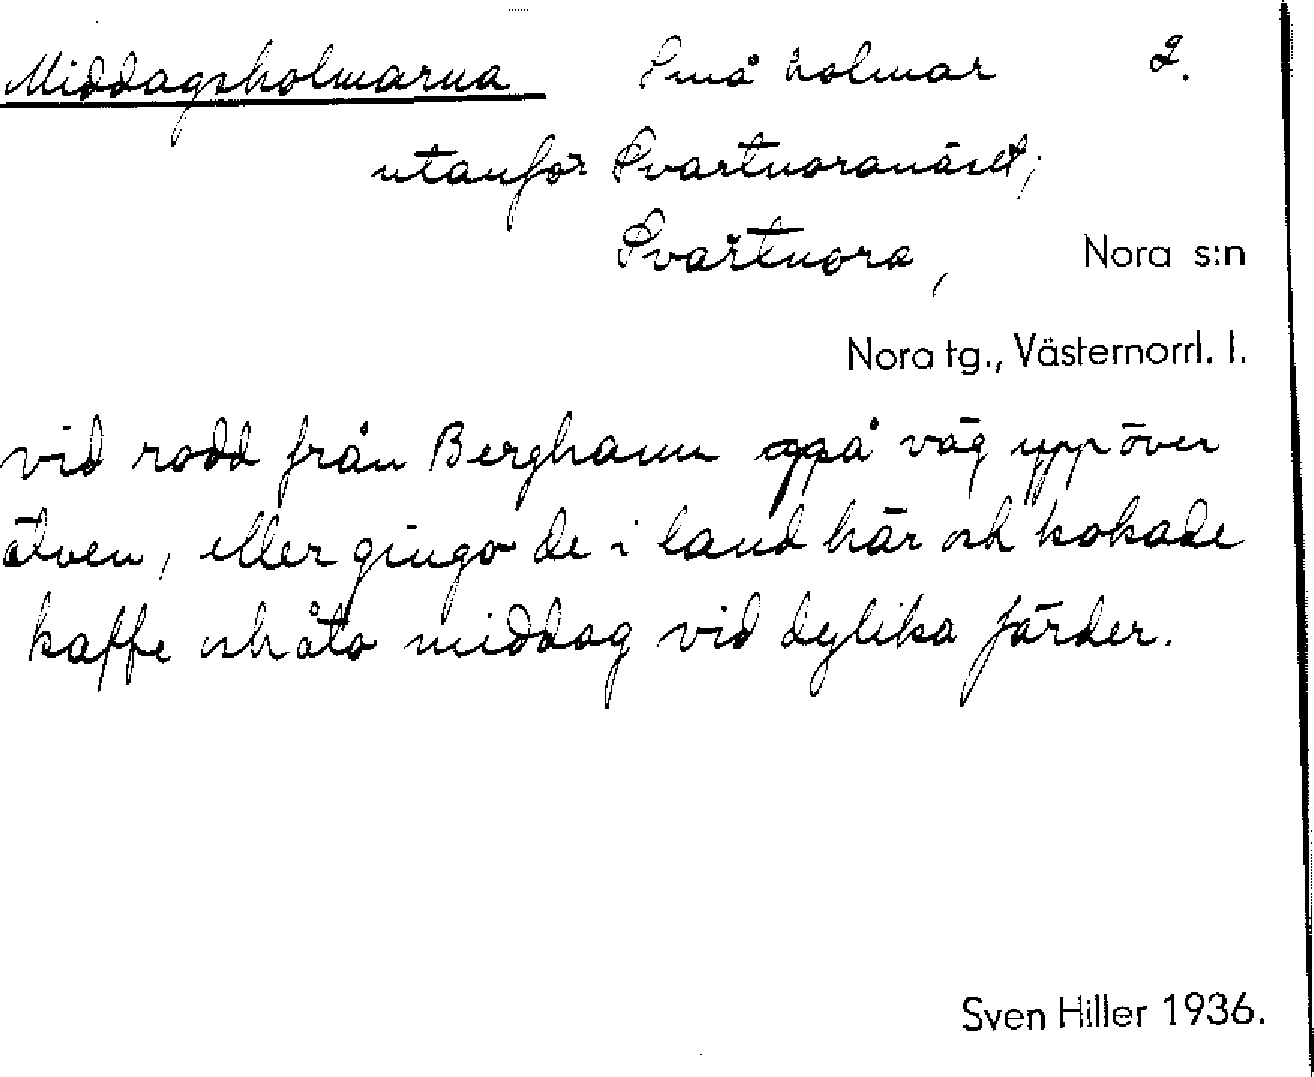 Middagsholmarna Små holmar 2.
utanför Svartnoranäset;
Svartnora, Nora s:n
Nora tg., Västernorrl. l.
vid rodd från Berghamn på väg uppöver
älven, eller gingo de i land här och kokade
kaffe och åto middag vid dylika färder.
Sven Hiller 1936.